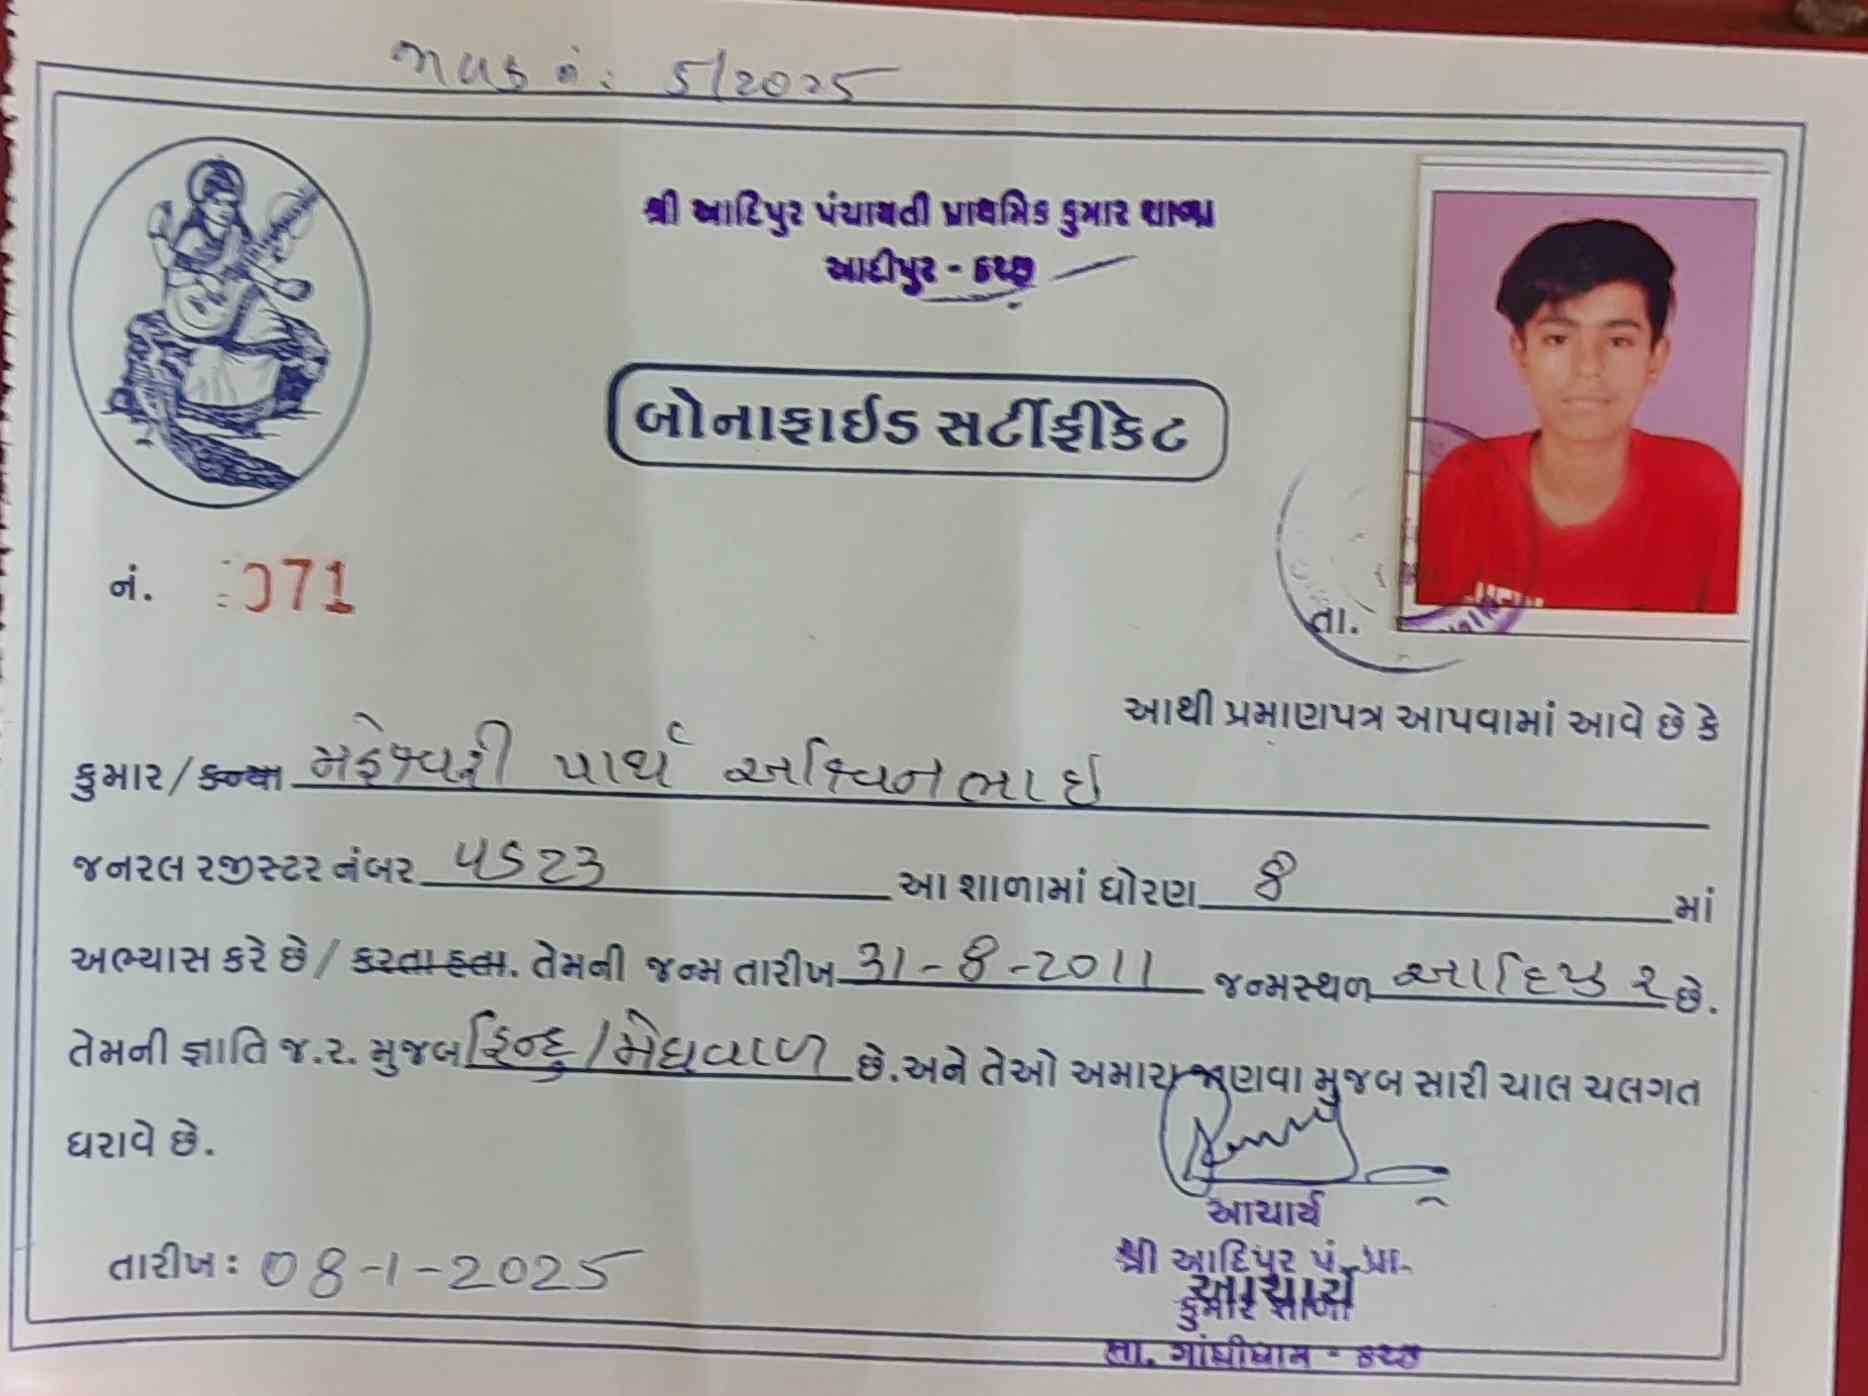 જાવક નં: 5/2025
શ્રી આદિપુર પંચાયતી પ્રાથમિક કુમાર શાળા
આદીપુર - કચ્છ
બોનાફાઈડ સર્ટીફીકેટ
નં. 071
તા.
આથી પ્રમાણપત્ર આપવામાં આવે છે કે
કુમાર / કન્યા મહેશ્વરી પાર્થ અશ્વિનભાઈ
જનરલ રજીસ્ટર નંબર આ શાળામાં ધોરણ 8 માં
અભ્યાસ કરે છે / કરતા હતા. તેમની જન્મ તારીખ 31-8-2011 જન્મસ્થળ આદિપુર છે.
તેમની જ્ઞાતિ જ.ર. મુજબ હિન્દુ / મેઘવાળ છે. અને તેઓ અમારા જાણવા મુજબ સારી ચાલ ચલગત
ધરાવે છે.
આચાર્ય
તારીખ: 08-1-2025
શ્રી આદિપુર પં. પ્રા.
આચાર્ય
કુમાર શાળા
તા. ગાંધીધામ - કચ્છ